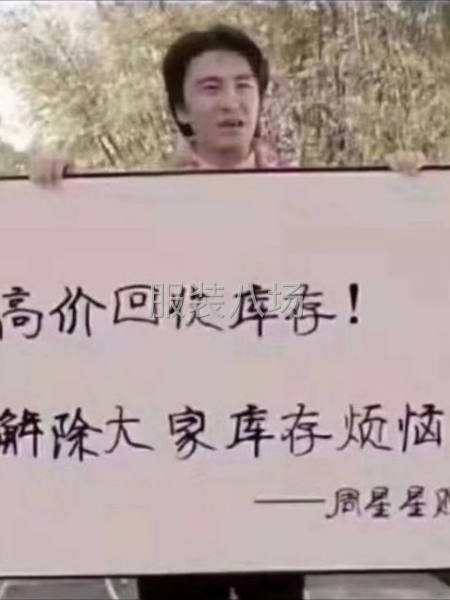 高价回收库存!
服装八场
解除大家库存烦恼
——周星星